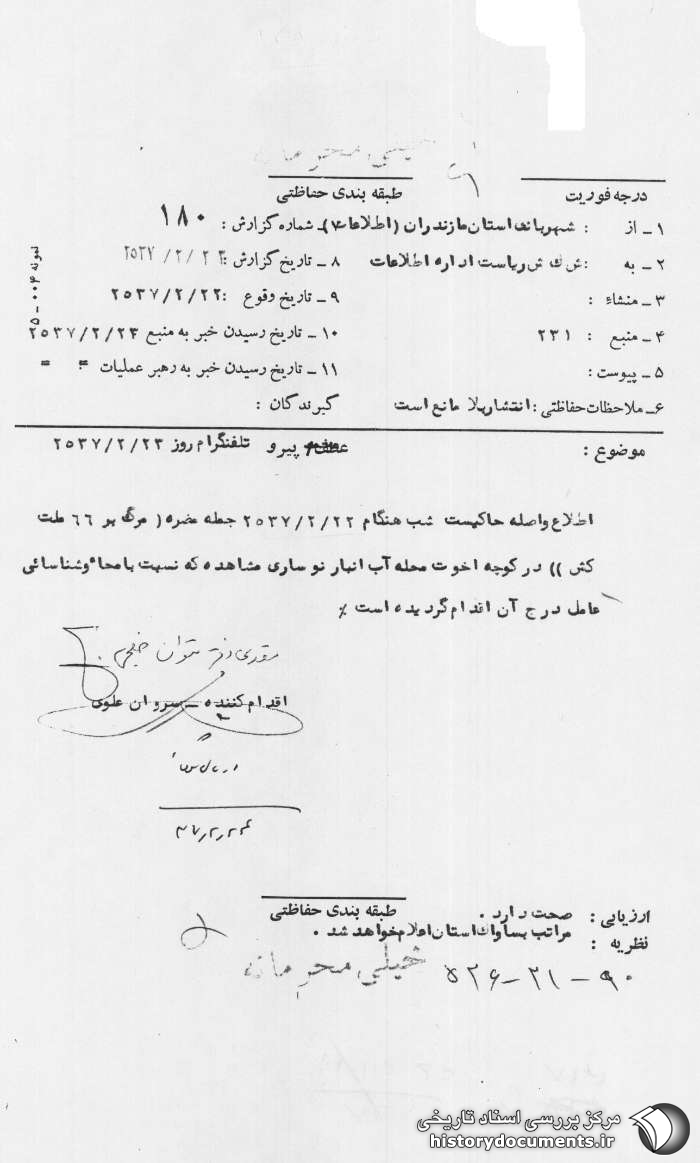 درجه فوریت
طبقه بندی حفاظتی
۱ـ از : شهربانی استان مازندران (اطلاعات ۷)ـ شماره گزارش : ۱۸۰
۲ـ به : ش ك ش ریاست اداره اطلاعات ۸ ـ تاریخ گزارش : ۲۵۳۷/۲/۲۳
۳ـ منشاء : ۹ـ تاریخ وقوع : ۲۵۳۷/۲/۲۲
۴ـ منبع : ۲۳۱ ۱۰ ـ تاریخ رسیدن خبر به منبع ۲۵۳۷/۲/۲۳
۵ـ پیوست : ۱۱ ـ تاریخ رسیدن خبر به رهبر عملیات = =
۶ـ ملاحظات حفاظتی : انتشار بلا مانع است گیرندگان :
نمونه ۰۰۴ ـ ۵
موضوع : پیرو تلفنگرام روز ۲۵۳۷/۲/۲۳
اطلاع واصله حاکیست شب هنگام ۲۵۳۷/۲/۲۲ جمله مضره( مرگ بر ۶۶ ملت
کش )) در کوچه اخوت محله آب انبار نو ساری مشاهده که نسبت بامحاء وشناسائی
عامل درج آن اقدام گردیده است ٪
اقدام کننده ـ سروان علوی
۳۷٫۲٫۲۳
طبقه بندی حفاظتی
ارزیابی : صحت دارد .
نظریه : مراتب بساواك استان اعلام خواهد شد .
خیلی محرمانه
۵۲۶-۲۱-۹۰
مرکز بررسی اسناد تاریخی
historydocuments.ir